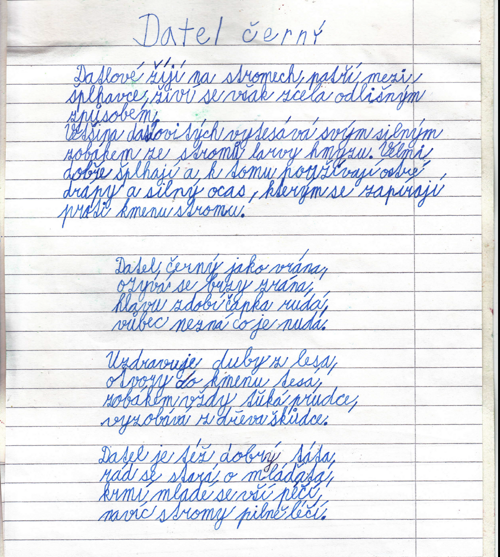 Datel černý
Datlové žijí na stromech, patří mezi
šplhavce, živí se však zcela odlišným
způsobem.
Většina datlovitých vytesává svým silným
zobákem ze stromů larvy hmyzu. Velmi
dobře šplhají a k tomu používají ostré
drápy a silný ocas, kterým se zapírají
proti kmenu stromu.
Datel černý jako vrána,
ozývá se brzy zrána,
hlavu zdobí čapka rudá,
vůbec nezná co je nuda.
Uzdravuje duby z lesa,
otvory do kmenu tesá,
zobákem vždy ťuká prudce,
vyzobává z dřeva škůdce.
Datel je též dobrý táta,
rád se stará o mláďata,
krmí mladé se vší péčí,
navíc stromy pilně léčí.